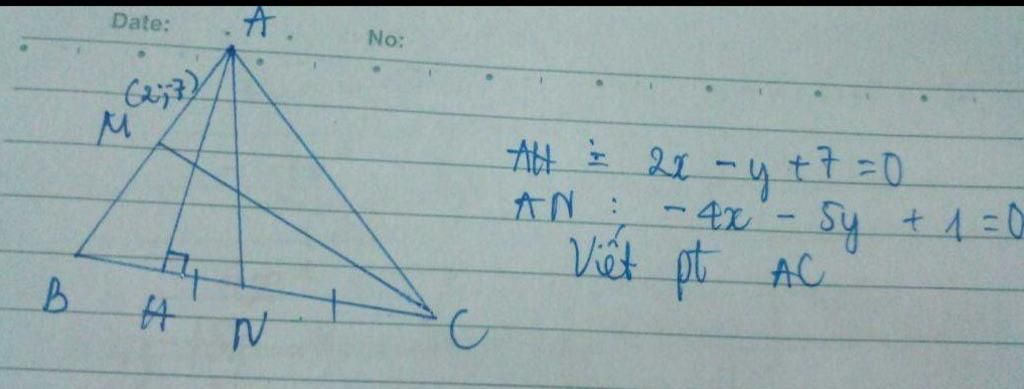 Date:
A
No:
(2;-7)
M
AH : 2x - y + 7 = 0
AN : -4x - 5y + 1 = 0
Viết pt AC
B
H
N
C